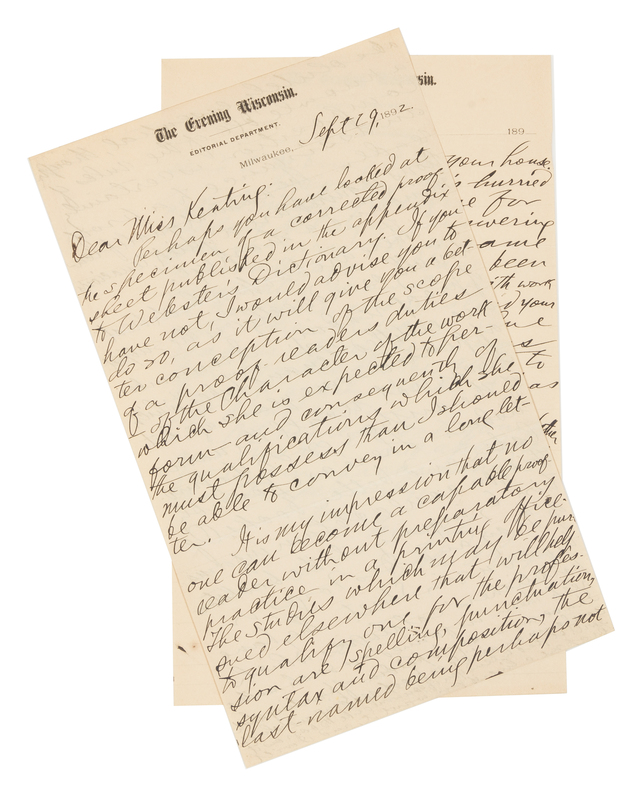 The Evening Wisconsin.
EDITORIAL DEPARTMENT.
Milwaukee, Sept 29, 1892.
Dear Miss Keating:
Perhaps you have looked at
the specimen of a corrected proof
sheet published in the appendix
to Webster's Dictionary. If you
have not, I would advise you to
do so, as it will give you a bet-
ter conception of the scope
of a proof-readers duties
& of the character of the work
which she is expected to per-
form and consequently of
the qualifications which she
must possess than I should
be able to convey in a long let-
ter.
It is my impression that no
one can become a capable proof-
reader without preparatory
practice in a printing office.
The studies which may be pur-
sued elsewhere that will help
to qualify one for the profes-
sion are spelling, punctuation,
syntax and composition, the
last-named being perhaps not
sin.
189
your house
hurried
for
wering
ame
been
ith work
d your
to
as